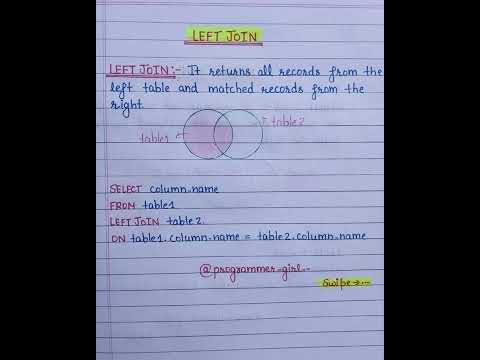 LEFT JOIN
LEFT JOIN:- It returns all records from the
left table and matched records from the
right.
table1
table2
SELECT column_name
FROM table1
LEFT JOIN table2
ON table1.column_name = table2.column_name
@programmer_girl_
Swipe→...